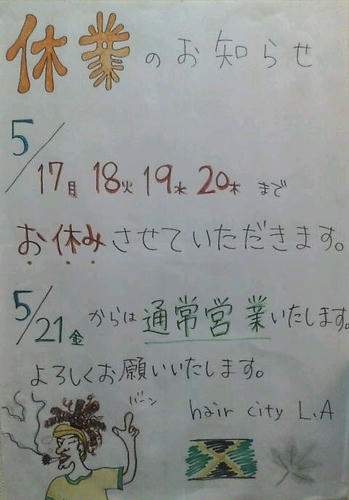 休業のお知らせ
5/17月 18火 19水 20木 まで
お休みさせていただきます。
5/21金 からは通常営業いたします。
よろしくお願いいたします。
バーン
hair city L.A